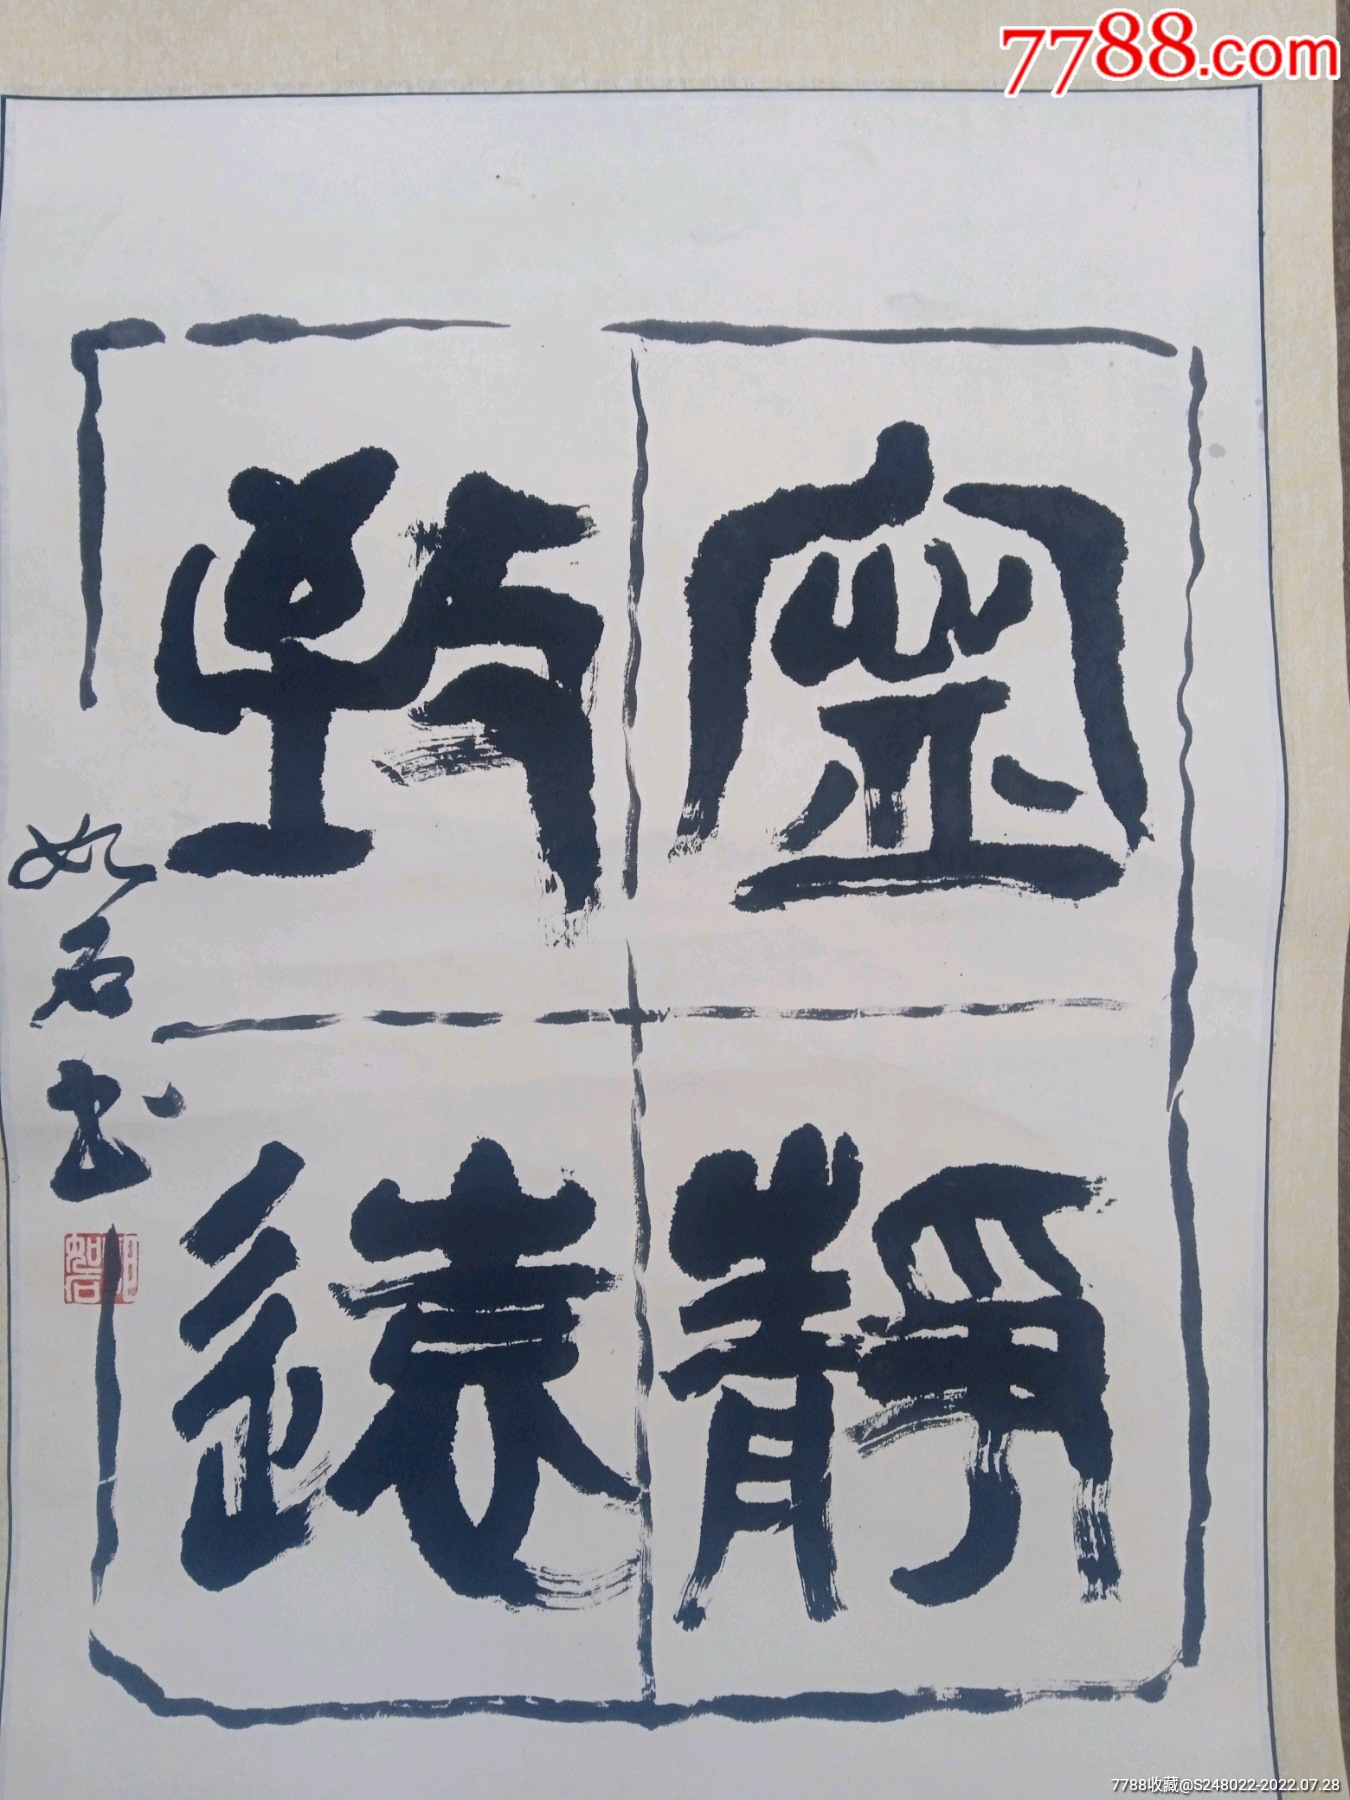 7788.com
寧靜
致遠
如石书
如石
7788收藏@S248022-2022.07.28